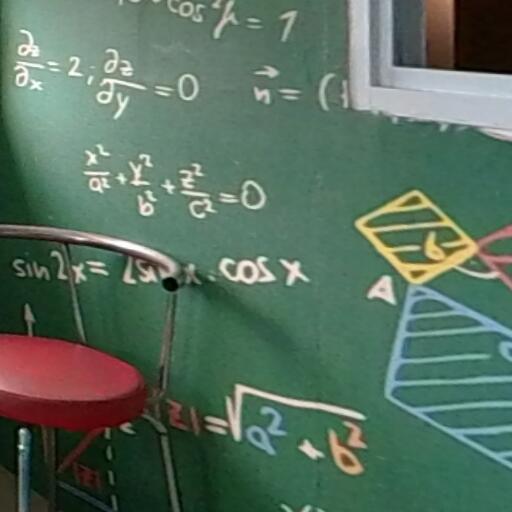 cos² y = 1
∂z/∂x = 2; ∂z/∂y = 0
n⃗ = (
x²/a² + y²/b² + z²/c² = 0
b
sin2x = 2sin x · cos x
A
|z| = √(a² + b²)